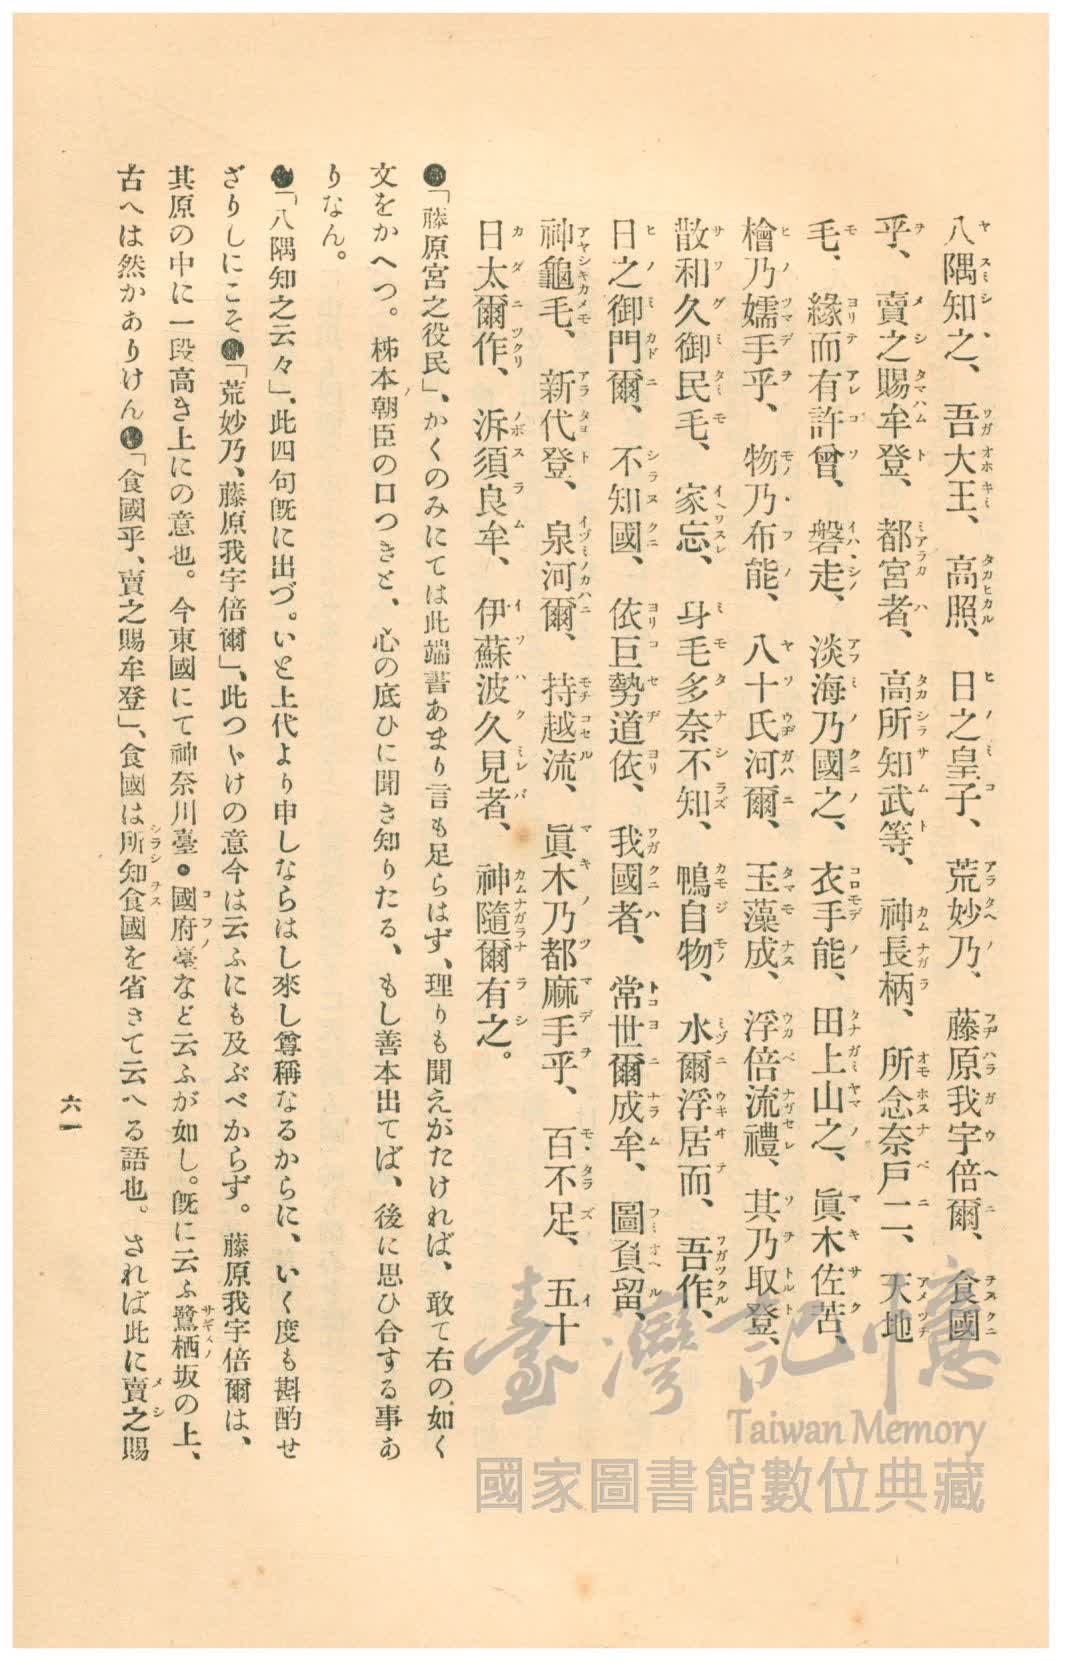 八隅知之、吾大王、高照、日之皇子、荒妙乃、藤原我宇倍爾、食國
乎、賣之賜牟登、都宮者、高所知武等、神長柄、所念奈戸二、天地
毛、緣而有許曾、磐走、淡海乃國之、衣手能、田上山之、眞木佐苦、
檜乃嬬手乎、物乃布能、八十氏河爾、玉藻成、浮倍流禮、其乃取登、
散和久御民毛、家忘、身毛多奈不知、鴨自物、水爾浮居而、吾作、
日之御門爾、不知國、依巨勢道依、我國者、常世爾成牟、圖負留、
神龜毛、新代登、泉河爾、持越流、眞木乃都麻手乎、百不足、五十
日太爾作、泝須良牟、伊蘇波久見者、神隨爾有之。
●「藤原宮之役民」、かくのみにては此端書あまり言も足らはず、理りも聞えがたければ、敢て右の如く
文をかへつ。柹本朝臣の口つきと、心の底ひに聞き知りたる、もし善本出てば、後に思ひ合する事あ
りなん。
●「八隅知之云々」、此四句既に出づ。いと上代より申しならはし來し尊稱なるからに、いく度も斟酌せ
ざりしにこそ●「荒妙乃、藤原我宇倍爾」、此つゞけの意今は云ふにも及ぶべからず。藤原我宇倍爾は、
其原の中に一段高き上にの意也。今東國にて神奈川臺・國府臺など云ふが如し。既に云ふ鷺栖坂の上、
古へは然かありけん●「食國乎、賣之賜牟登」、食國は所知食國を省きて云へる語也。されば此に賣之賜
六一
臺灣記憶
Taiwan Memory
國家圖書館數位典藏